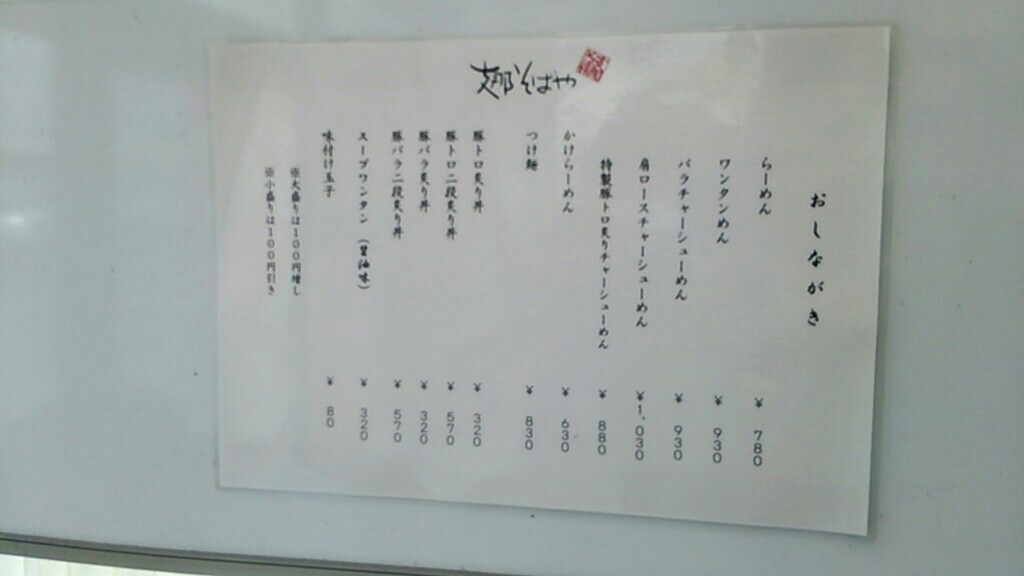 おしながき
らーめん ¥ 780
ワンタンめん ¥ 930
バラチャーシューめん ¥ 930
肩ロースチャーシューめん ¥1,030
特製豚トロ炙りチャーシューめん ¥ 880
かけらーめん ¥ 630
つけ麺 ¥ 830
豚トロ炙り丼 ¥ 320
豚トロ二段炙り丼 ¥ 570
豚バラ炙り丼 ¥ 320
豚バラ二段炙り丼 ¥ 570
スープワンタン (醤油味) ¥ 320
味付け玉子 ¥ 80
※大盛りは100円増し
※小盛りは100円引き
そばや